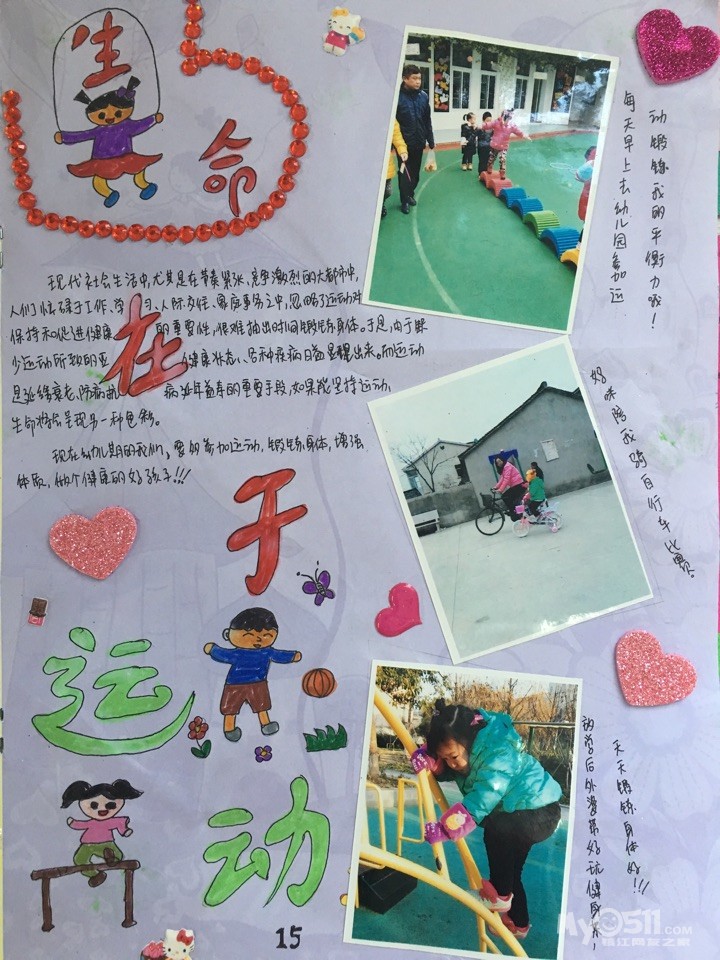 生
命
现代社会生活中,尤其是在节奏紧张、竞争激烈的大都市中,
人们忙碌于工作、学习、人际交往、家庭事务之中,忽略了运动对
保持和促进健康的重要性,很难抽出时间锻炼身体。于是,由于缺
少运动所致的亚健康状态、各种疾病日益显现出来。而运动
是延缓衰老、防病抗病延年益寿的重要手段,如果能坚持运动,
生命将会呈现另一种色彩。
在
现在幼儿期的我们,要多参加运动,锻炼身体,增强
体质,做个健康的好孩子!!!
于
运
动
每天早上去幼儿园参加运
动锻炼我的平衡力哦!
好咪陪我骑自行车比赛。
放学后外婆带好玩健身
天天锻炼身体好!!!
15
My0511.COM
镇江网友之家